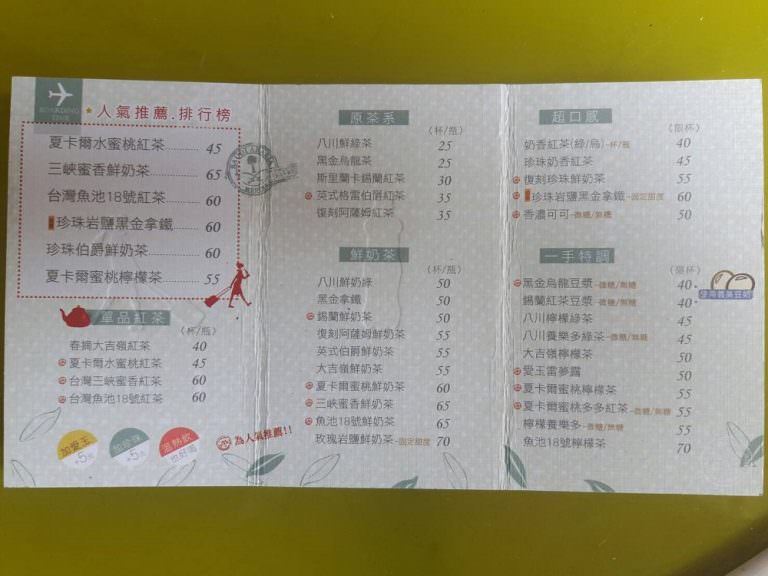 人氣推薦.排行榜
夏卡爾水蜜桃紅茶 45
三峽蜜香鮮奶茶 65
台灣魚池18號紅茶 60
珍珠岩鹽黑金拿鐵 60
珍珠伯爵鮮奶茶 60
夏卡爾蜜桃檸檬茶 55
單品紅茶
(杯/瓶)
春摘大吉嶺紅茶 40
夏卡爾水蜜桃紅茶 45
台灣三峽蜜香紅茶 60
台灣魚池18號紅茶 60
加愛玉
+5元
加珍珠
+5元
溫熱飲
也好喝
為人氣推薦!!
原茶系
(杯/瓶)
八川鮮綠茶 25
黑金烏龍茶 25
斯里蘭卡錫蘭紅茶 30
英式格雷伯爵紅茶 35
復刻阿薩姆紅茶 35
鮮奶茶
(杯/瓶)
八川鮮奶綠 50
黑金拿鐵 50
錫蘭鮮奶茶 50
復刻阿薩姆鮮奶茶 55
英式伯爵鮮奶茶 55
大吉嶺鮮奶茶 55
夏卡爾蜜桃鮮奶茶 60
三峽蜜香鮮奶茶 65
魚池18號鮮奶茶 65
玫瑰岩鹽鮮奶茶-固定甜度 70
超口感
(限杯)
奶香紅茶(綠/烏)-杯/瓶 40
珍珠奶香紅茶 45
復刻珍珠鮮奶茶 55
珍珠岩鹽黑金拿鐵-固定甜度 60
香濃可可-微糖/無糖 50
一手特調
(限杯)
黑金烏龍豆漿-微糖/無糖 40
錫蘭紅茶豆漿-微糖/無糖 40
八川檸檬綠茶 45
八川養樂多綠茶-微糖/無糖 45
大吉嶺檸檬茶 50
愛玉雷夢露 50
夏卡爾蜜桃檸檬茶 55
夏卡爾蜜桃多多紅茶-微糖/無糖 55
檸檬養樂多-微糖/無糖 55
魚池18號檸檬茶 70